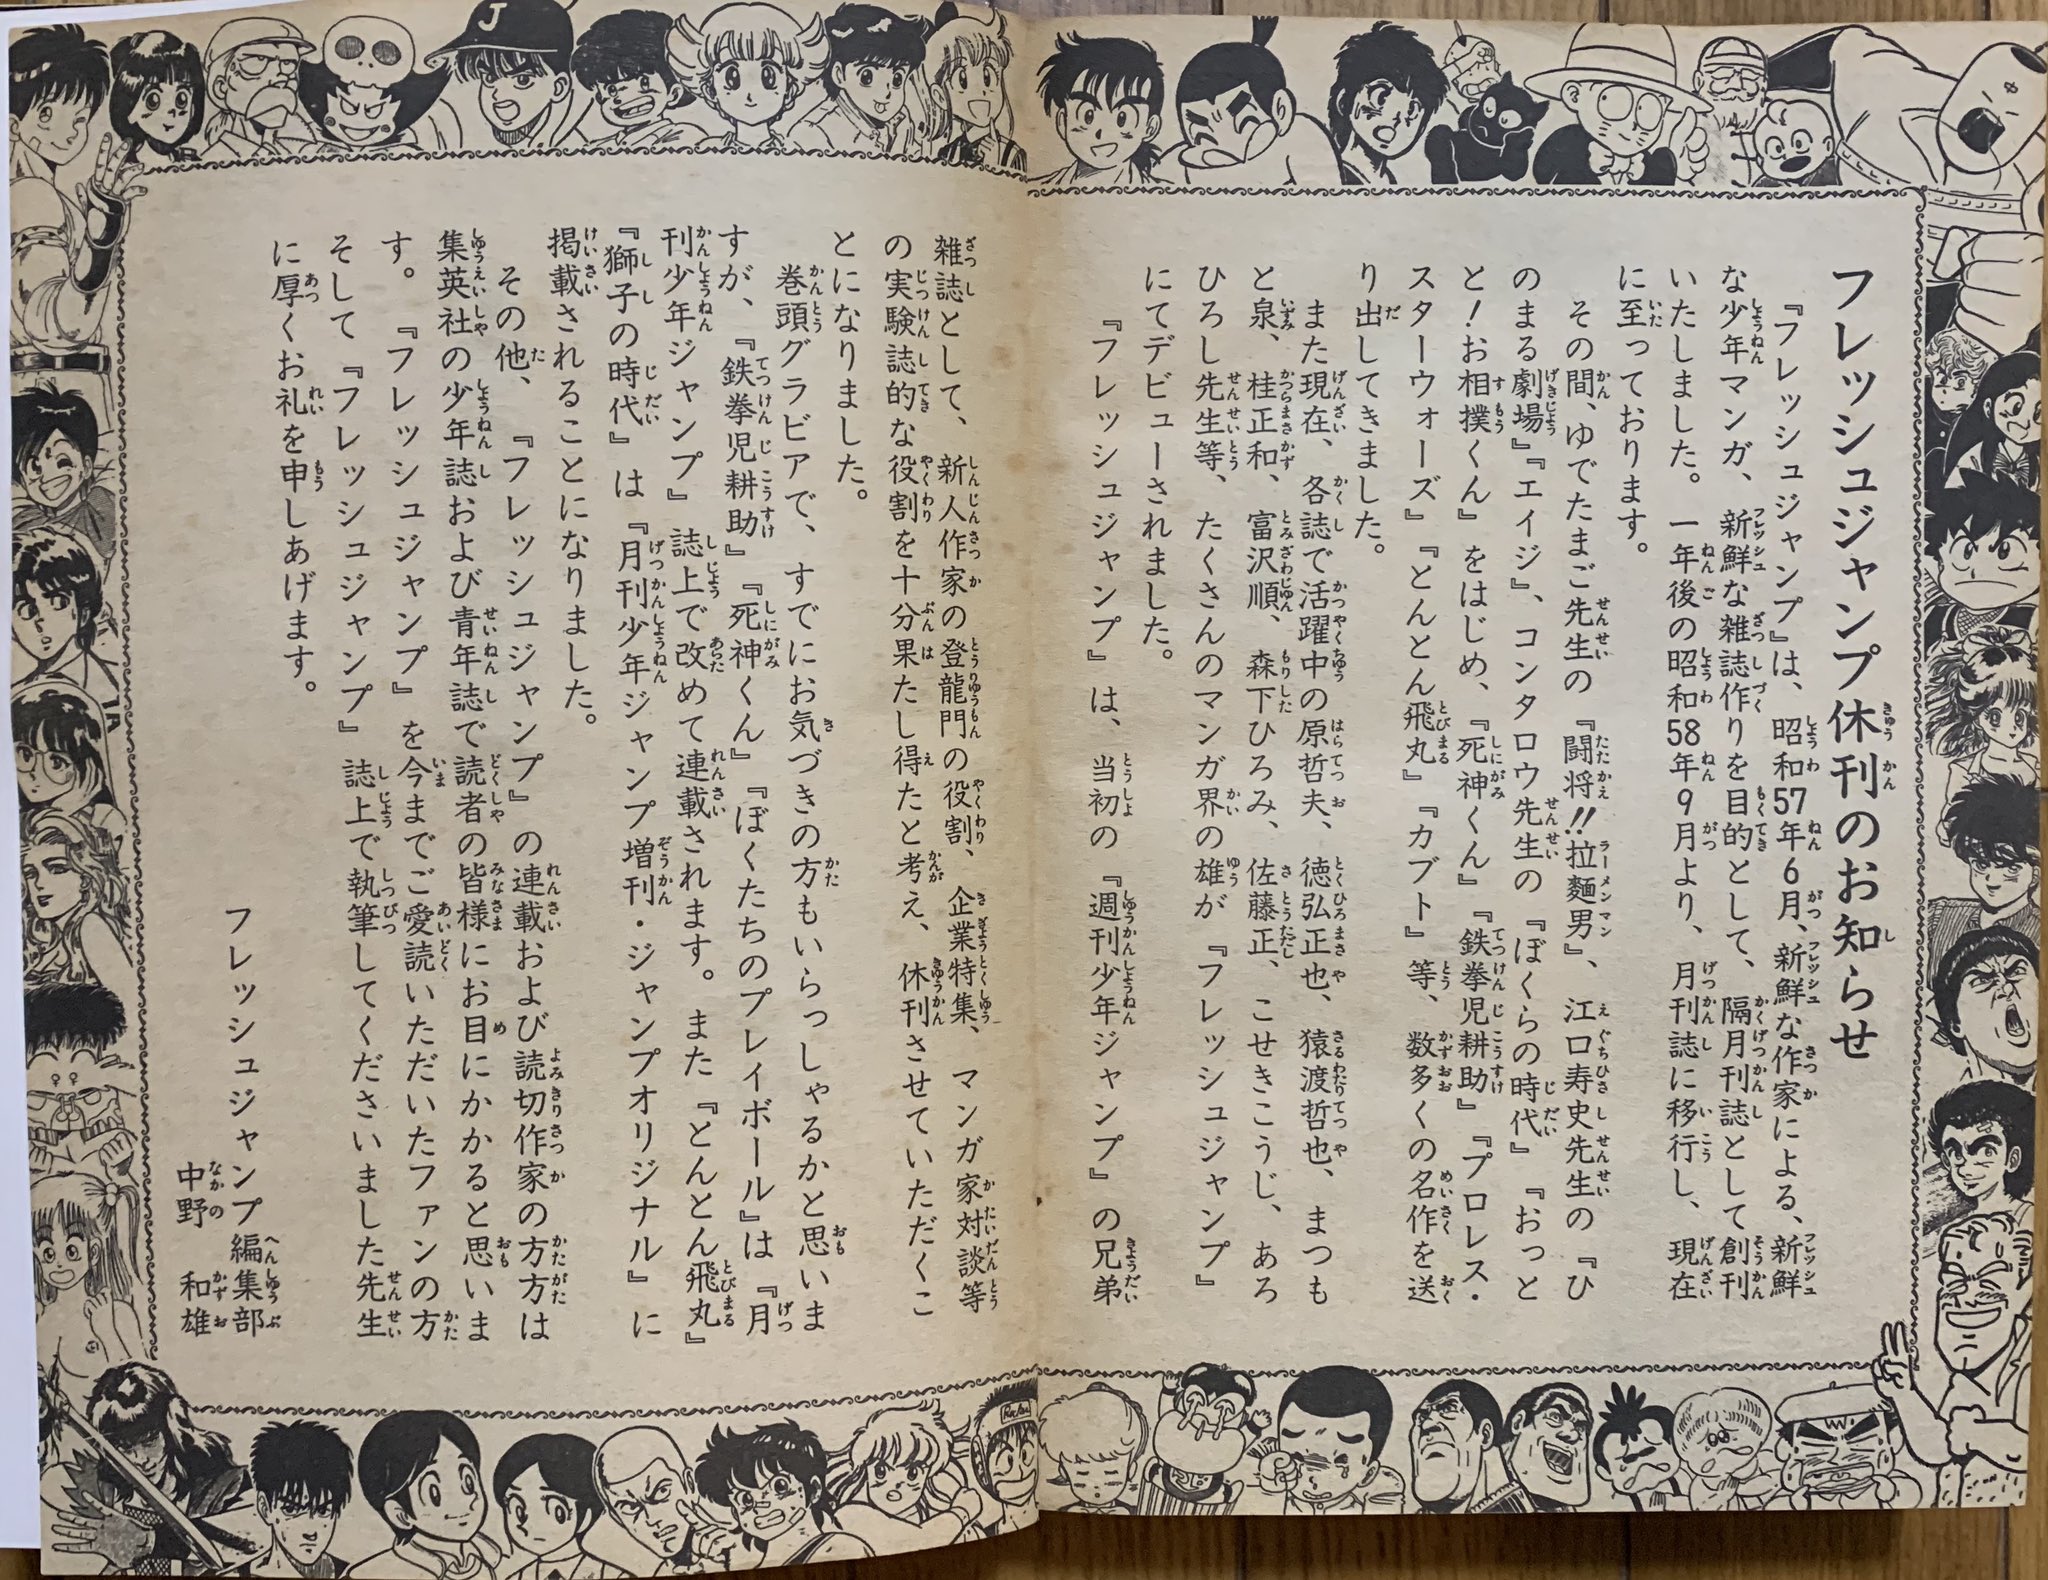 フレッシュジャンプ休刊のお知らせ
『フレッシュジャンプ』は、昭和57年6月、新鮮な作家による、新鮮
な少年マンガ、新鮮な雑誌作りを目的として、隔月刊誌として創刊
いたしました。一年後の昭和58年9月より、月刊誌に移行し、現在
に至っております。
その間、ゆでたまご先生の『闘将!!拉麵男』、江口寿史先生の『ひ
のまる劇場』『エイジ』、コンタロウ先生の『ぼくらの時代』『おっと
と!お相撲くん』をはじめ、『死神くん』『鉄拳児耕助』『プロレス・
スターウォーズ』『とんとん飛丸』『カブト』等、数多くの名作を送
り出してきました。
また現在、各誌で活躍中の原哲夫、徳弘正也、猿渡哲也、まつも
と泉、桂正和、富沢順、森下ひろみ、佐藤正、こせきこうじ、あろ
ひろし先生等、たくさんのマンガ界の雄が『フレッシュジャンプ』
にてデビューされました。
『フレッシュジャンプ』は、当初の『週刊少年ジャンプ』の兄弟
雑誌として、新人作家の登龍門の役割、企業特集、マンガ家対談等
の実験誌的な役割を十分果たし得たと考え、休刊させていただくこ
とになりました。
巻頭グラビアで、すでにお気づきの方もいらっしゃるかと思いま
すが、『鉄拳児耕助』『死神くん』『ぼくたちのプレイボール』は『月
刊少年ジャンプ』誌上で改めて連載されます。また『とんとん飛丸』
『獅子の時代』は『月刊少年ジャンプ増刊・ジャンプオリジナル』に
掲載されることになりました。
その他、『フレッシュジャンプ』の連載および読切作家の方方は
集英社の少年誌および青年誌で読者の皆様にお目にかかると思いま
す。『フレッシュジャンプ』を今までご愛読いただいたファンの方
そして『フレッシュジャンプ』誌上で執筆してくださいました先生
に厚くお礼を申しあげます。
フレッシュジャンプ編集部
中野和雄
J